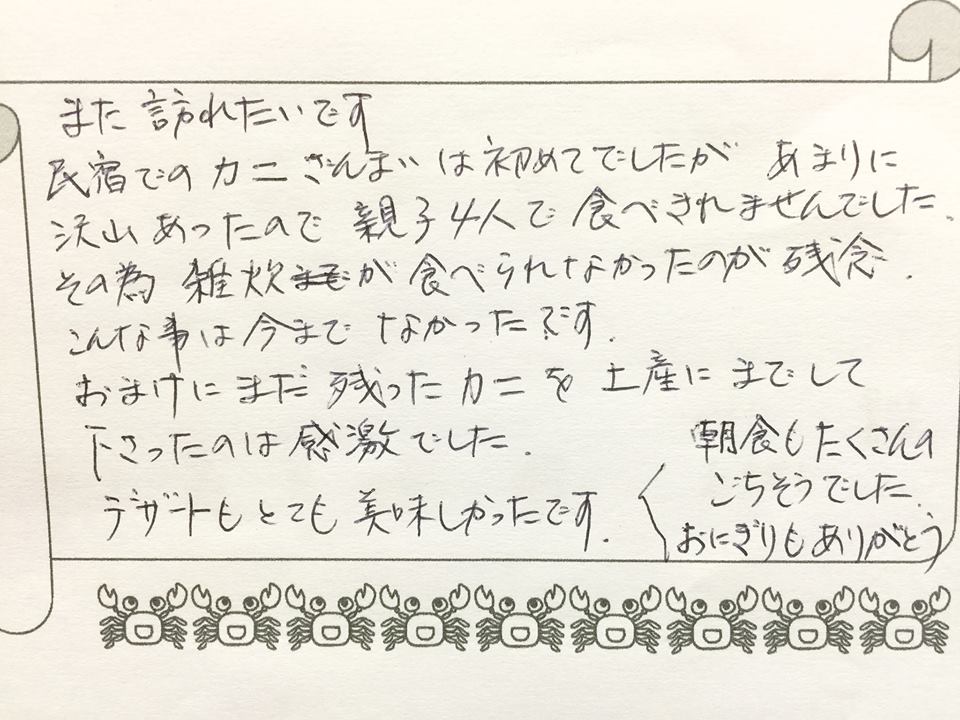 また訪れたいです
民宿でのカニざんまいは初めてでしたが あまりに
沢山あったので 親子4人で食べきれませんでした。
その為 雑炊が食べられなかったのが残念.
こんな事は今までなかったです.
おまけにまだ残ったカニを土産にまでして
下さったのは感激でした.
デザートもとても美味しかったです.
朝食もたくさんの
ごちそうでした.
おにぎりもありがとう